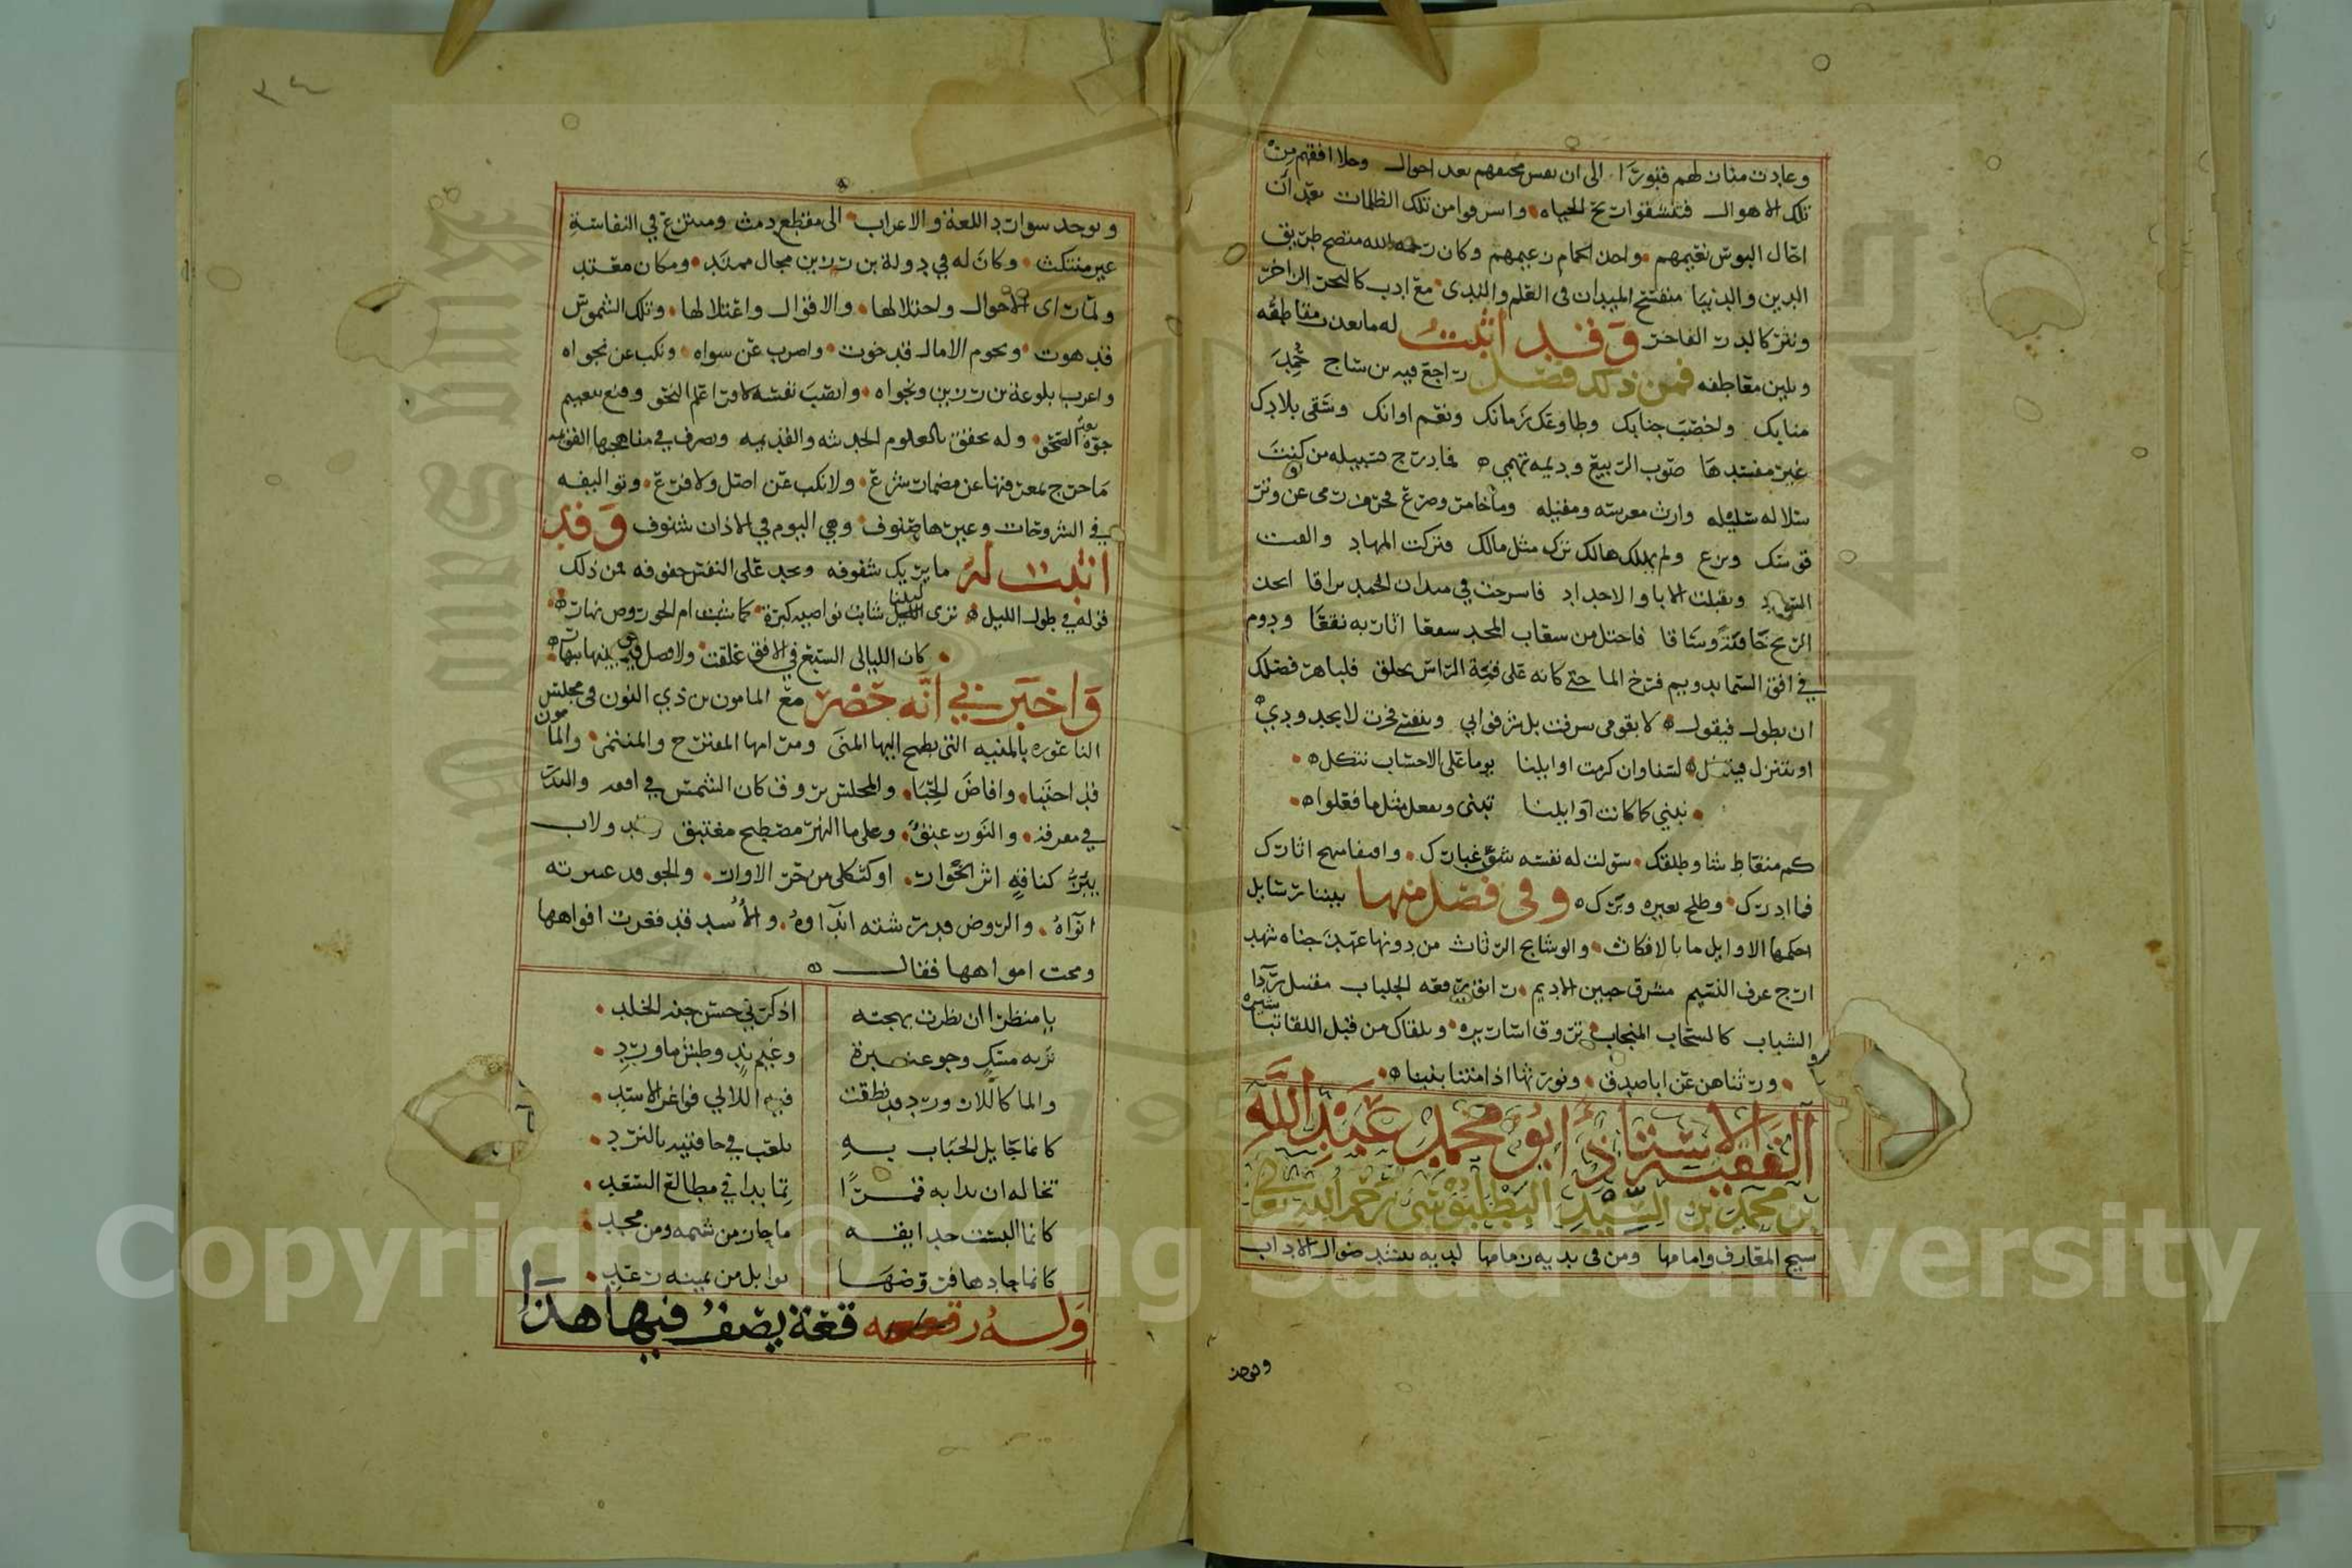 وعادت منازلهم قبورا الى ان نفس مخنقهم بعد احوال وحلا افقهم من
تلك الاهوال فتنشقوا ريح الحياه واسرفوا من تلك الظلمات بعد ان
احال البوس نعيمهم واحد الحمام زعيمهم وكان رحمه الله متضح طريق
الدين والدنيا منفتح الميدان في العلم والندى مع ادب كالبحر الزاخر
ونثر كالدر الفاخر وقد اثبت له ما يعذب مقاطعه
ويلين معاطفه فمن ذلك فصل راجع فيه بن ساج حميد
منابك واخصب جنابك وطاوعك زمانك ونعم اوانك وسقى بلادك
غير مفسدها صوب الربيع وديمه تهمي فما درج من كنت
سلاله سليله وارث معرسه ومقيله وما خامر وضرع محرف رمى عن وتر
قوسك ونزع ولم يهلك هالك ترك مثل مالك وتركت المهاد والفت
وتقبلت الابا والاجداد فاسرجت في ميدان الحمد براقا اتخذ
الريح خافقة وساقا فاحتل من سقاب المجد سمعا اثار به نقعا ودوم
في افق السما يدويم فرخ الما حتى كانه على قمة الراس محلق فلباهر فضلك
ان يطول فيقول لا بقومى شرفت بل شرفوا بي وبنفسي فخرت لا بجدودي
او يتنزل لسنا وان كرمت اوايلنا يوما على الاحساب نتكل
نبني كما كانت اوايلنا تبنى ونفعل مثل ما فعلوا
كم متعاط شاو طلقك سولت له نفسه شق غبارك واقتفا منهج اثارك
فما ادرك وطلح بعيره وبرك وفي فصل منها بيننا رسايل
احكمها الاوايل ما بالافكاث والوشايج الرثاث من دونها عهد جناه شهد
ارج عرف النسيم مشرق جبين الاديم رايق رقعه الجلباب مقتبل ردا
الشباب كالسحاب المنجاب تروق اسارىره وتلقاك من قبل اللقا تباشيره
ورثناهن عن ابا صدق ونورثها اذا متنا بنينا
الفقيه الاستاذ ابو محمد عبد الله
بن محمد بن السيد البطليوسي رحمه الله تعالى
شيخ المعارف وامامها ومن في يديه زمامها لديه تنشد ضوال الاداب
وتوجد
٣٤
وتوجد شوارد اللغة والاعراب الى مقطع دمث ومنتزع في النفاسة
غير منتكث وكان له في دولة بن رزين مجال ممتد ومكان معتد
ولما راى الاحوال واختلالها والاقوال واعتلالها وتلك الشموس
قد هوت ونجوم الامال قد خوت واضرب عن سواه ونكب عن نجواه
واعرب بلوعة بن رزين وبجواه وانصب نفسه لاقراء علم النحو وقنع بتغييم
جوه بعد الصحو وله تحقق بالعلوم الحديثه والقديمه وتصرف في مناهجها القويمه
ما خرج بمعرفتها عن مضمار شرع ولا نكب عن اصل ولا فرع وتواليفه
في الشروحات وغيرها صنوف وهي اليوم في الاذان شنوف وقد
اثبت له ما يريك شفوفه وتجد على النفس حقوفه فمن ذلك
قوله في طول الليل ترى ليلنا شابت نواصيه كبرة كما شبت ام الجو روض نهار
كان الليالي السبع في الافق علقت ولا فصل فيما بينها لنهار
واخبرني انه حضر مع المامون بن ذي النون في مجلس
الناعوره بالمنيه التي تطمح اليها المنى ومراها المقترح والمتمنى والمامون
قد احتبا وافاض الحبا والمجلس يروق كان الشمس في افقه والبدر
في مفرقه والنور عبق وعلى ما النهر مصطبح مغتبق ودولاب
يئن كناقة اثر الحوار او كثكلى من حر الاوار والجو قد عنبرته
انواه والروض قد رشته انداوه والاسد قد فغرت افواهها
ومجت امواهها فقال
يا منظرا ان نظرت بهجته اذكرني حسن جنه الخلد
تربه مسك وجو عنبرة وغيم ند وطش ماورد
والما كاللازورد قد نظقت فيه اللالي فواغر الاسد
كانما جايل الحباب به يلعب في حافتيه بالنرد
تخاله ان بدا به قمرا تما بدا في مطالع السعد
كانما البست حدايقه ما حاز من شيمه ومن مجد
كانما جادها فروضها بوابل من يمينه رغد
وله رقعة يصف فيها هذا
Copyright © King Saud University